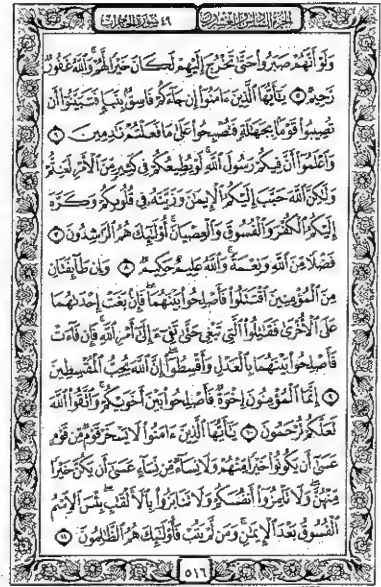 الجزء السادس والعشرون ٤٩ سورة الحجرات
وَلَوْ أَنَّهُمْ صَبَرُوا۟ حَتَّىٰ تَخْرُجَ إِلَيْهِمْ لَكَانَ خَيْرًا لَّهُمْ وَٱللَّهُ غَفُورٌ
رَّحِيمٌ ٥ يَٰٓأَيُّهَا ٱلَّذِينَ ءَامَنُوٓا۟ إِن جَآءَكُمْ فَاسِقٌۢ بِنَبَإٍ فَتَبَيَّنُوٓا۟ أَن
تُصِيبُوا۟ قَوْمًۢا بِجَهَٰلَةٍ فَتُصْبِحُوا۟ عَلَىٰ مَا فَعَلْتُمْ نَٰدِمِينَ ٦
وَٱعْلَمُوٓا۟ أَنَّ فِيكُمْ رَسُولَ ٱللَّهِ لَوْ يُطِيعُكُمْ فِى كَثِيرٍ مِّنَ ٱلْأَمْرِ لَعَنِتُّمْ
وَلَٰكِنَّ ٱللَّهَ حَبَّبَ إِلَيْكُمُ ٱلْإِيمَٰنَ وَزَيَّنَهُۥ فِى قُلُوبِكُمْ وَكَرَّهَ
إِلَيْكُمُ ٱلْكُفْرَ وَٱلْفُسُوقَ وَٱلْعِصْيَانَ أُو۟لَٰٓئِكَ هُمُ ٱلرَّٰشِدُونَ ٧
فَضْلًا مِّنَ ٱللَّهِ وَنِعْمَةً وَٱللَّهُ عَلِيمٌ حَكِيمٌ ٨ وَإِن طَآئِفَتَانِ
مِنَ ٱلْمُؤْمِنِينَ ٱقْتَتَلُوا۟ فَأَصْلِحُوا۟ بَيْنَهُمَا فَإِنۢ بَغَتْ إِحْدَىٰهُمَا
عَلَى ٱلْأُخْرَىٰ فَقَٰتِلُوا۟ ٱلَّتِى تَبْغِى حَتَّىٰ تَفِىٓءَ إِلَىٰٓ أَمْرِ ٱللَّهِ فَإِن فَآءَتْ
فَأَصْلِحُوا۟ بَيْنَهُمَا بِٱلْعَدْلِ وَأَقْسِطُوٓا۟ إِنَّ ٱللَّهَ يُحِبُّ ٱلْمُقْسِطِينَ
٩ إِنَّمَا ٱلْمُؤْمِنُونَ إِخْوَةٌ فَأَصْلِحُوا۟ بَيْنَ أَخَوَيْكُمْ وَٱتَّقُوا۟ ٱللَّهَ
لَعَلَّكُمْ تُرْحَمُونَ ١٠ يَٰٓأَيُّهَا ٱلَّذِينَ ءَامَنُوا۟ لَا يَسْخَرْ قَوْمٌ مِّن قَوْمٍ
عَسَىٰٓ أَن يَكُونُوا۟ خَيْرًا مِّنْهُمْ وَلَا نِسَآءٌ مِّن نِّسَآءٍ عَسَىٰٓ أَن يَكُنَّ خَيْرًا
مِّنْهُنَّ وَلَا تَلْمِزُوٓا۟ أَنفُسَكُمْ وَلَا تَنَابَزُوا۟ بِٱلْأَلْقَٰبِ بِئْسَ ٱلِٱسْمُ
ٱلْفُسُوقُ بَعْدَ ٱلْإِيمَٰنِ وَمَن لَّمْ يَتُبْ فَأُو۟لَٰٓئِكَ هُمُ ٱلظَّٰلِمُونَ ١١
٥١٦